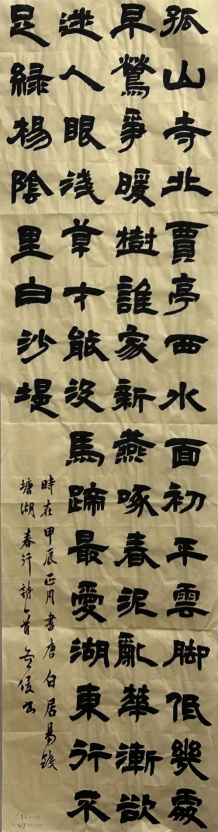 孤山寺北賈亭西水面初平雲脚低幾處
早鶯爭暖樹誰家新燕啄春泥亂華漸欲
迷人眼淺草才能没馬蹄最愛湖東行不
足綠楊陰里白沙堤
時在甲辰正月書唐白居易錢
塘湖春行詩一首